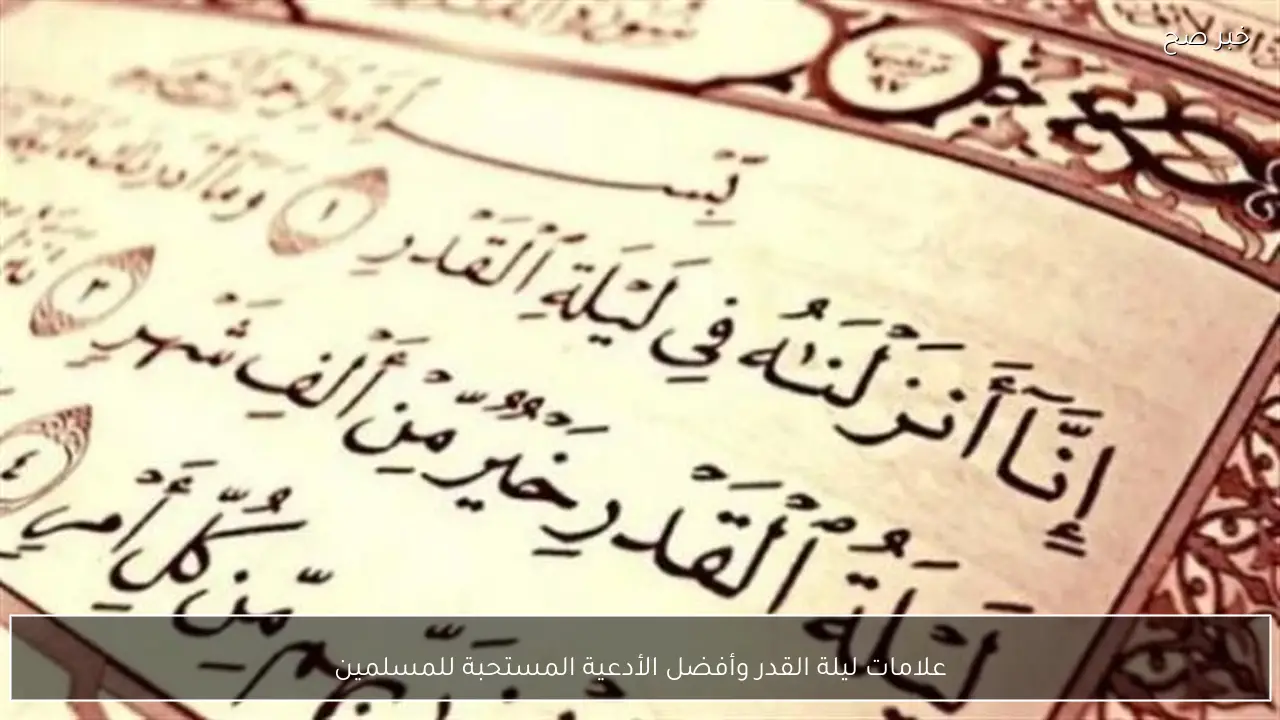 خبر صح
ترتيبها ٩٧
بِسْمِ ٱللَّهِ ٱلرَّحْمَٰنِ
إِنَّآ أَنزَلْنَٰهُ فِي لَيْلَةِ ٱلْقَدْرِ ١ وَمَآ أَدْرَىٰكَ مَا
لَيْلَةُ ٱلْقَدْرِ خَيْرٌ مِّنْ أَلْفِ شَهْرٍ ٣
مِّن كُلِّ أَمْرٍ ٤
علامات ليلة القدر وأفضل الأدعية المستحبة للمسلمين